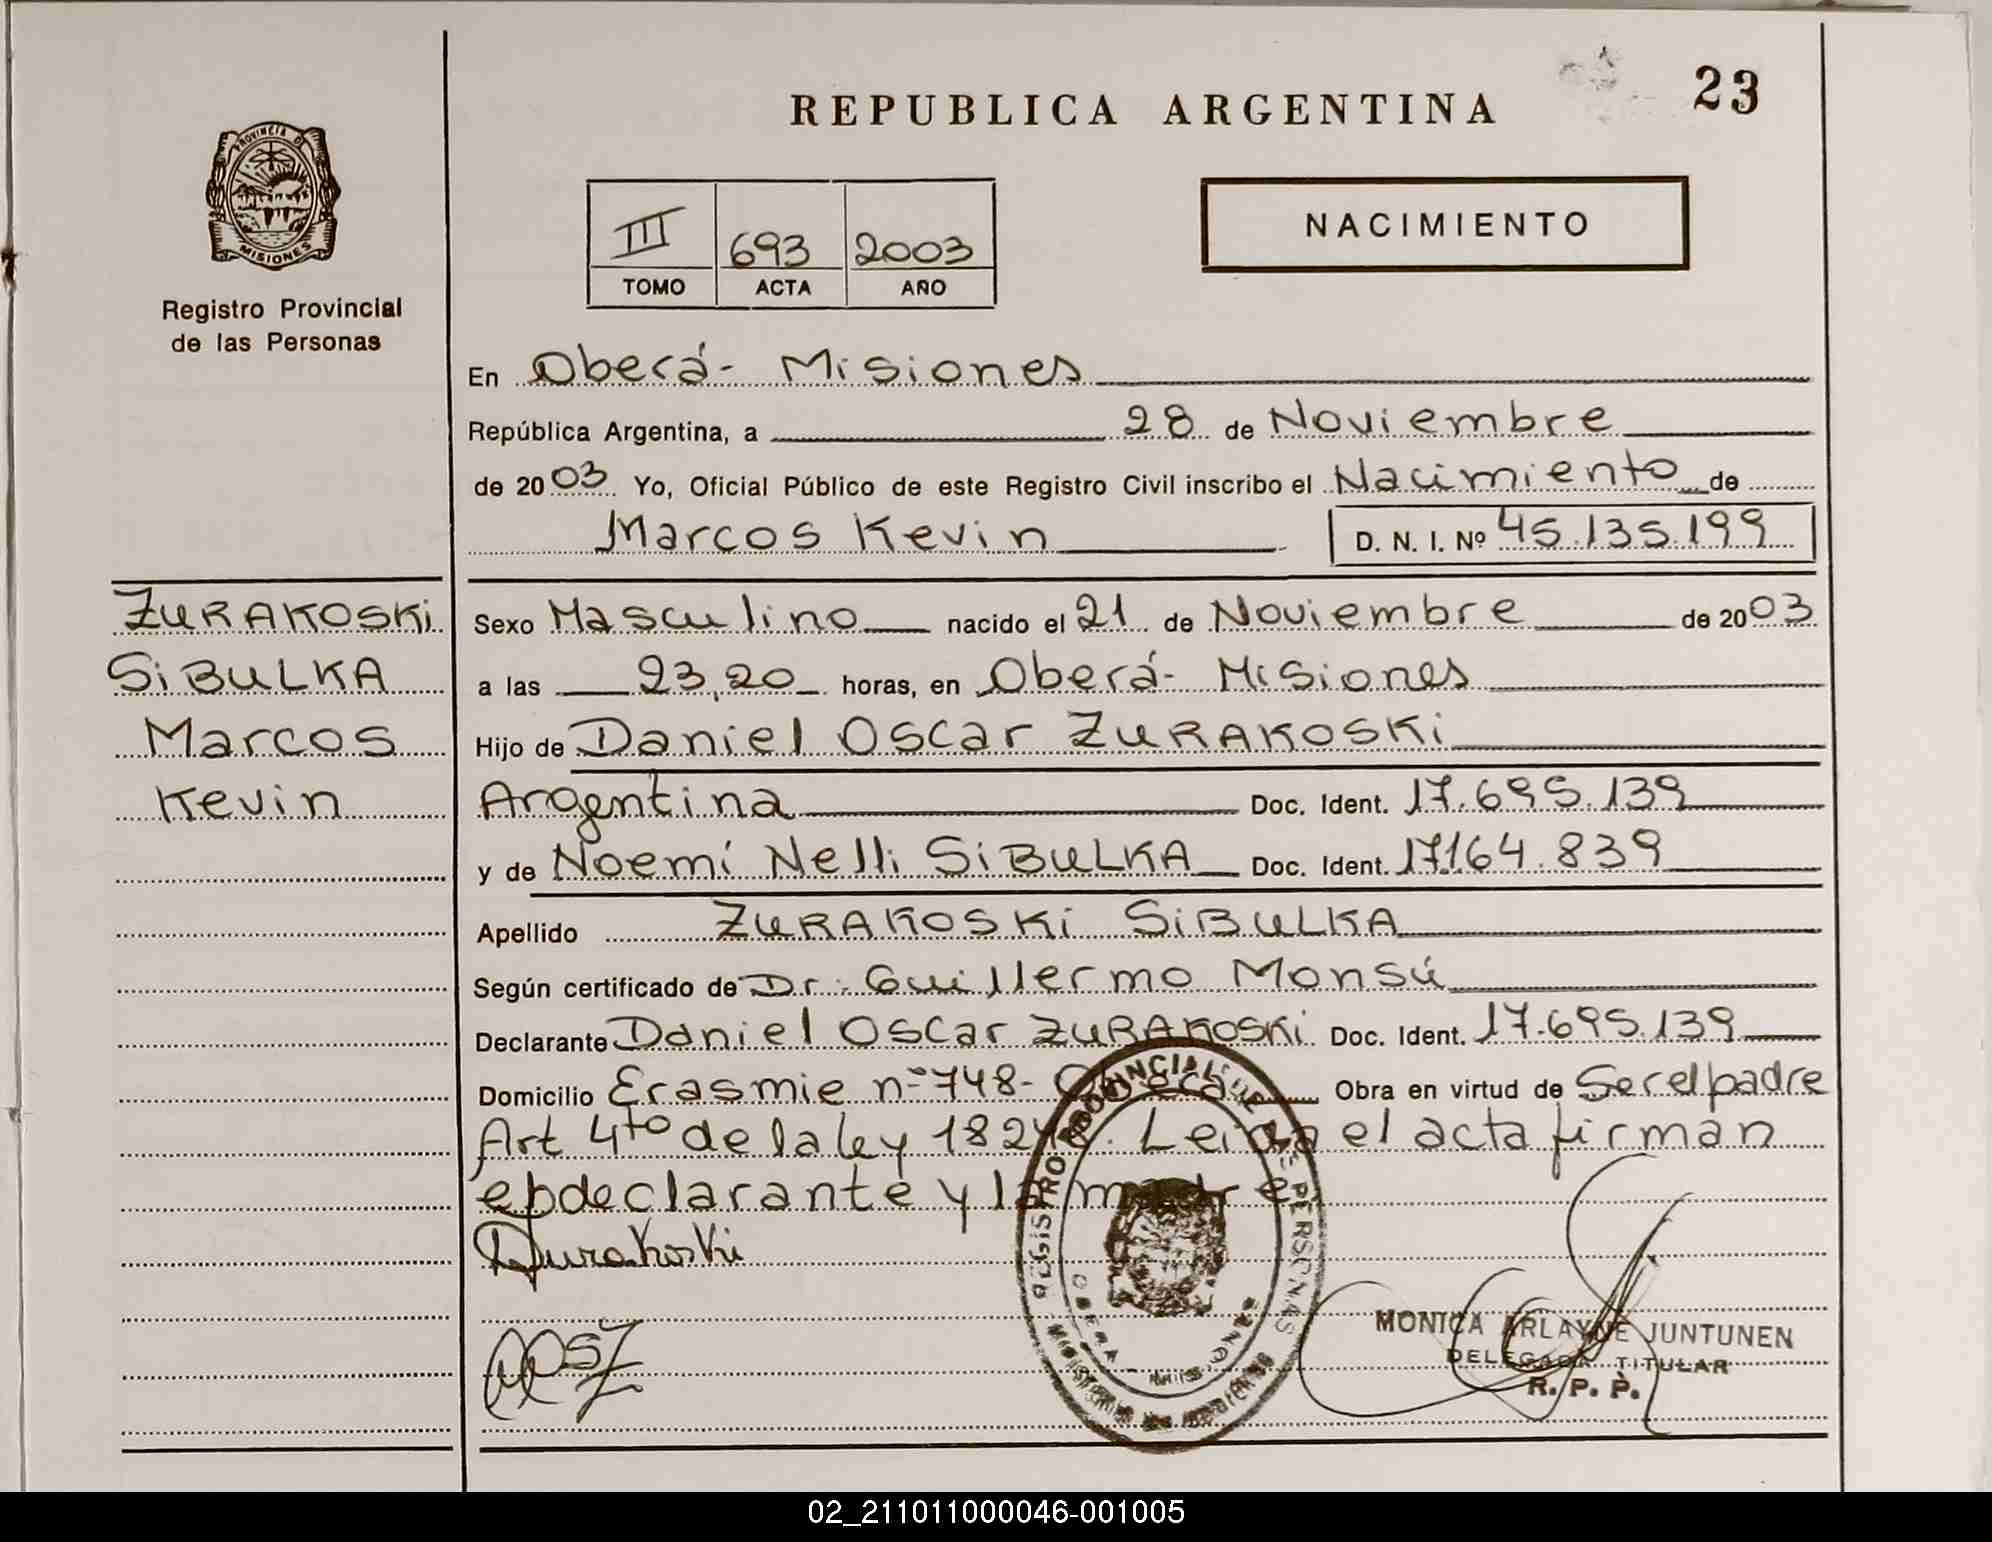 REPUBLICA ARGENTINA
23
PROVINCIA DE
MISIONES
Registro Provincial
de las Personas
III 693 2003
TOMO ACTA AÑO
NACIMIENTO
En Oberá- Misiones
República Argentina, a 28 de Noviembre
de 2003 Yo, Oficial Público de este Registro Civil inscribo el Nacimiento de
Marcos Kevin D. N. I. Nº 45.135.199
ZURAKOSKi
SiBULKA
Marcos
Kevin
Sexo Masculino nacido el 21 de Noviembre de 2003
a las 23,20 horas, en Oberá- Misiones
Hijo de Daniel Oscar ZURAKOSKi
Argentina Doc. Ident. 17.695.139
y de Noemí Nelli SiBULKA Doc. Ident. 17.164.839
Apellido ZURAKOSKi SiBULKA
Según certificado de Dr. Guillermo Monsú
Declarante Daniel Oscar ZURAKOSKi Doc. Ident. 17.695.139
Domicilio Erasmie nº 748- Oberá Obra en virtud de Ser el padre
Art 4to de la ley 18248. Leida el acta firman
el declarante y la madre
Zurakoski
REGISTRO PROVINCIAL DE LAS PERSONAS
OBERA - MISIONES
MINISTERIO DE GOBIERNO
MONICA ARLAYNE JUNTUNEN
DELEGADA TITULAR
R. P. P.
02_211011000046-001005